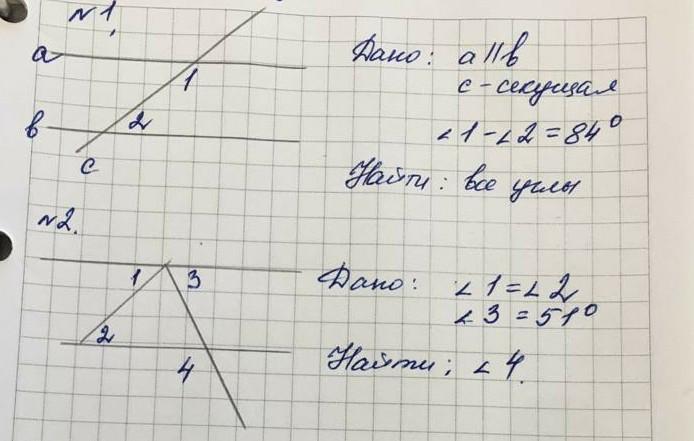 №1.
a
1
b
2
c
Дано: a∥b
c - секущая
∠1-∠2=84°
Найти: все углы
№2.
1 3
2
4
Дано: ∠1=∠2
∠3=51°
Найти: ∠4.